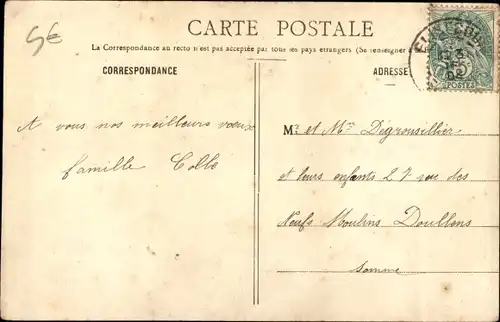 5€
CARTE POSTALE
La Correspondance au recto n'est pas acceptée par tous les pays étrangers (Se renseigner à
CORRESPONDANCE
ADRESSE
POSTES
A vous nos meilleurs vœux
famille Collé
Mr et Mme Dégrousillier
et leurs enfants 27 rue des
Neufs Moulins Doullens
Somme